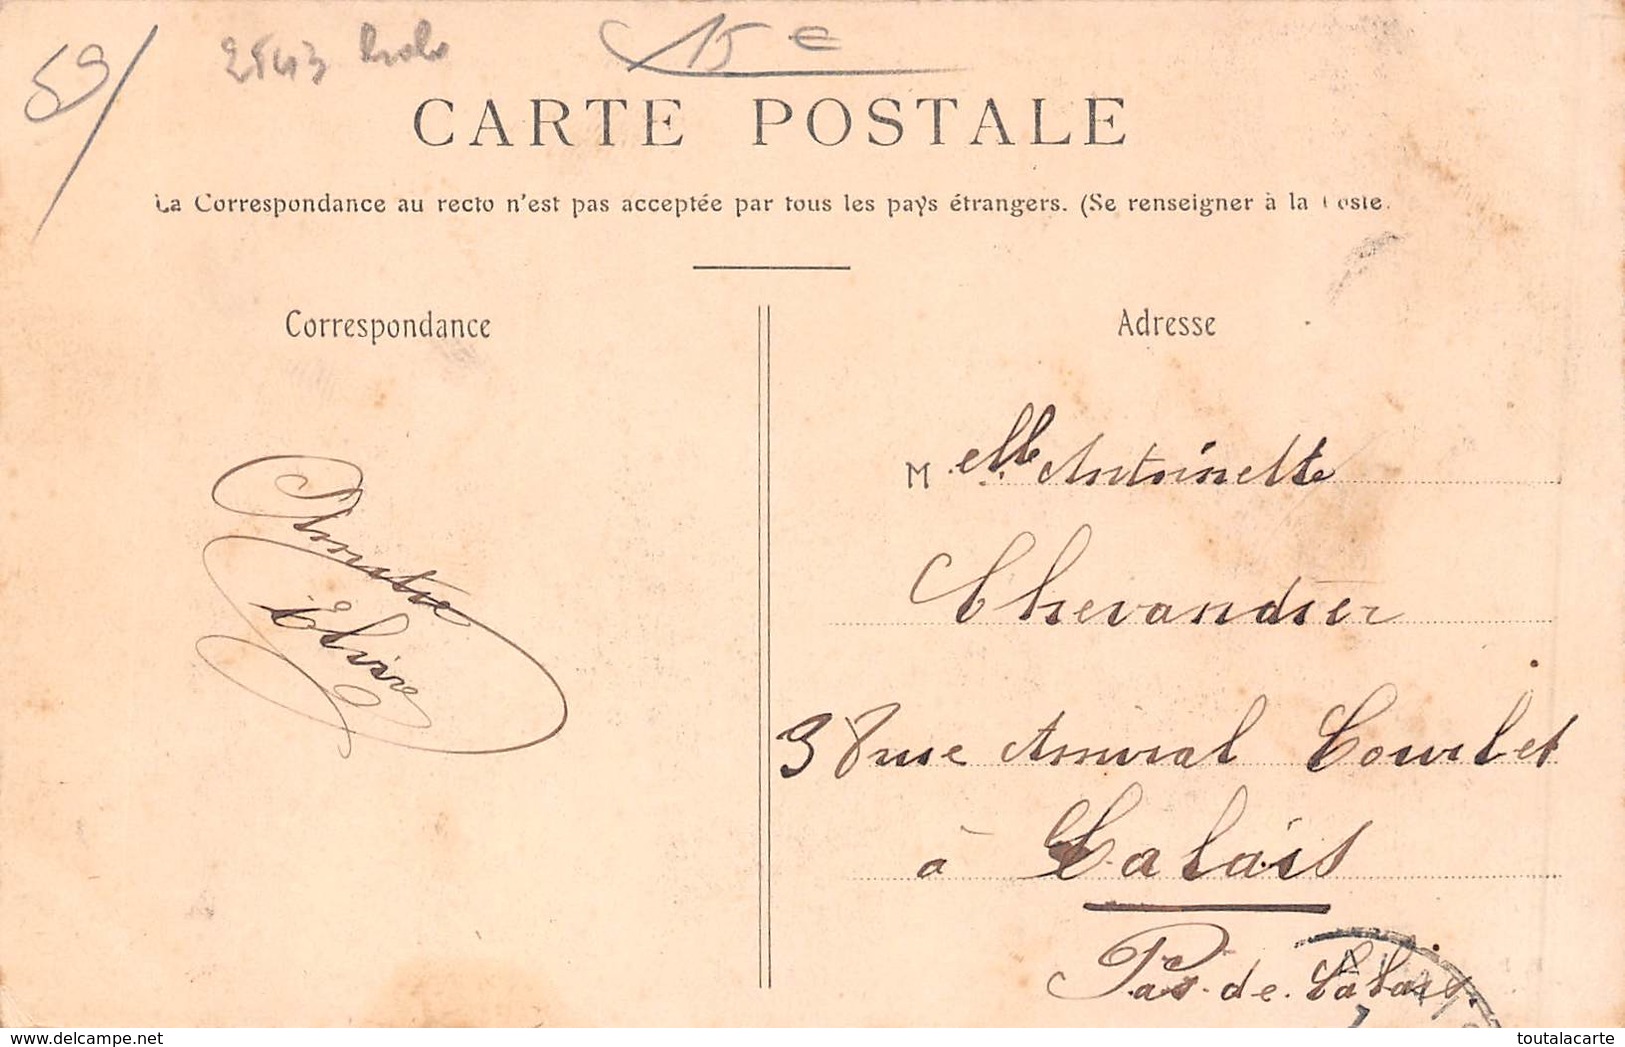 59/
2543
15 €
CARTE POSTALE
La Correspondance au recto n'est pas acceptée par tous les pays étrangers. (Se renseigner à la Poste.
Correspondance
Adresse
Elvire
Melle Antoinette
Chevandier
38 rue Amiral Courbet
à Calais
Pas-de-Calais.
toutalacarte
delcampe.net